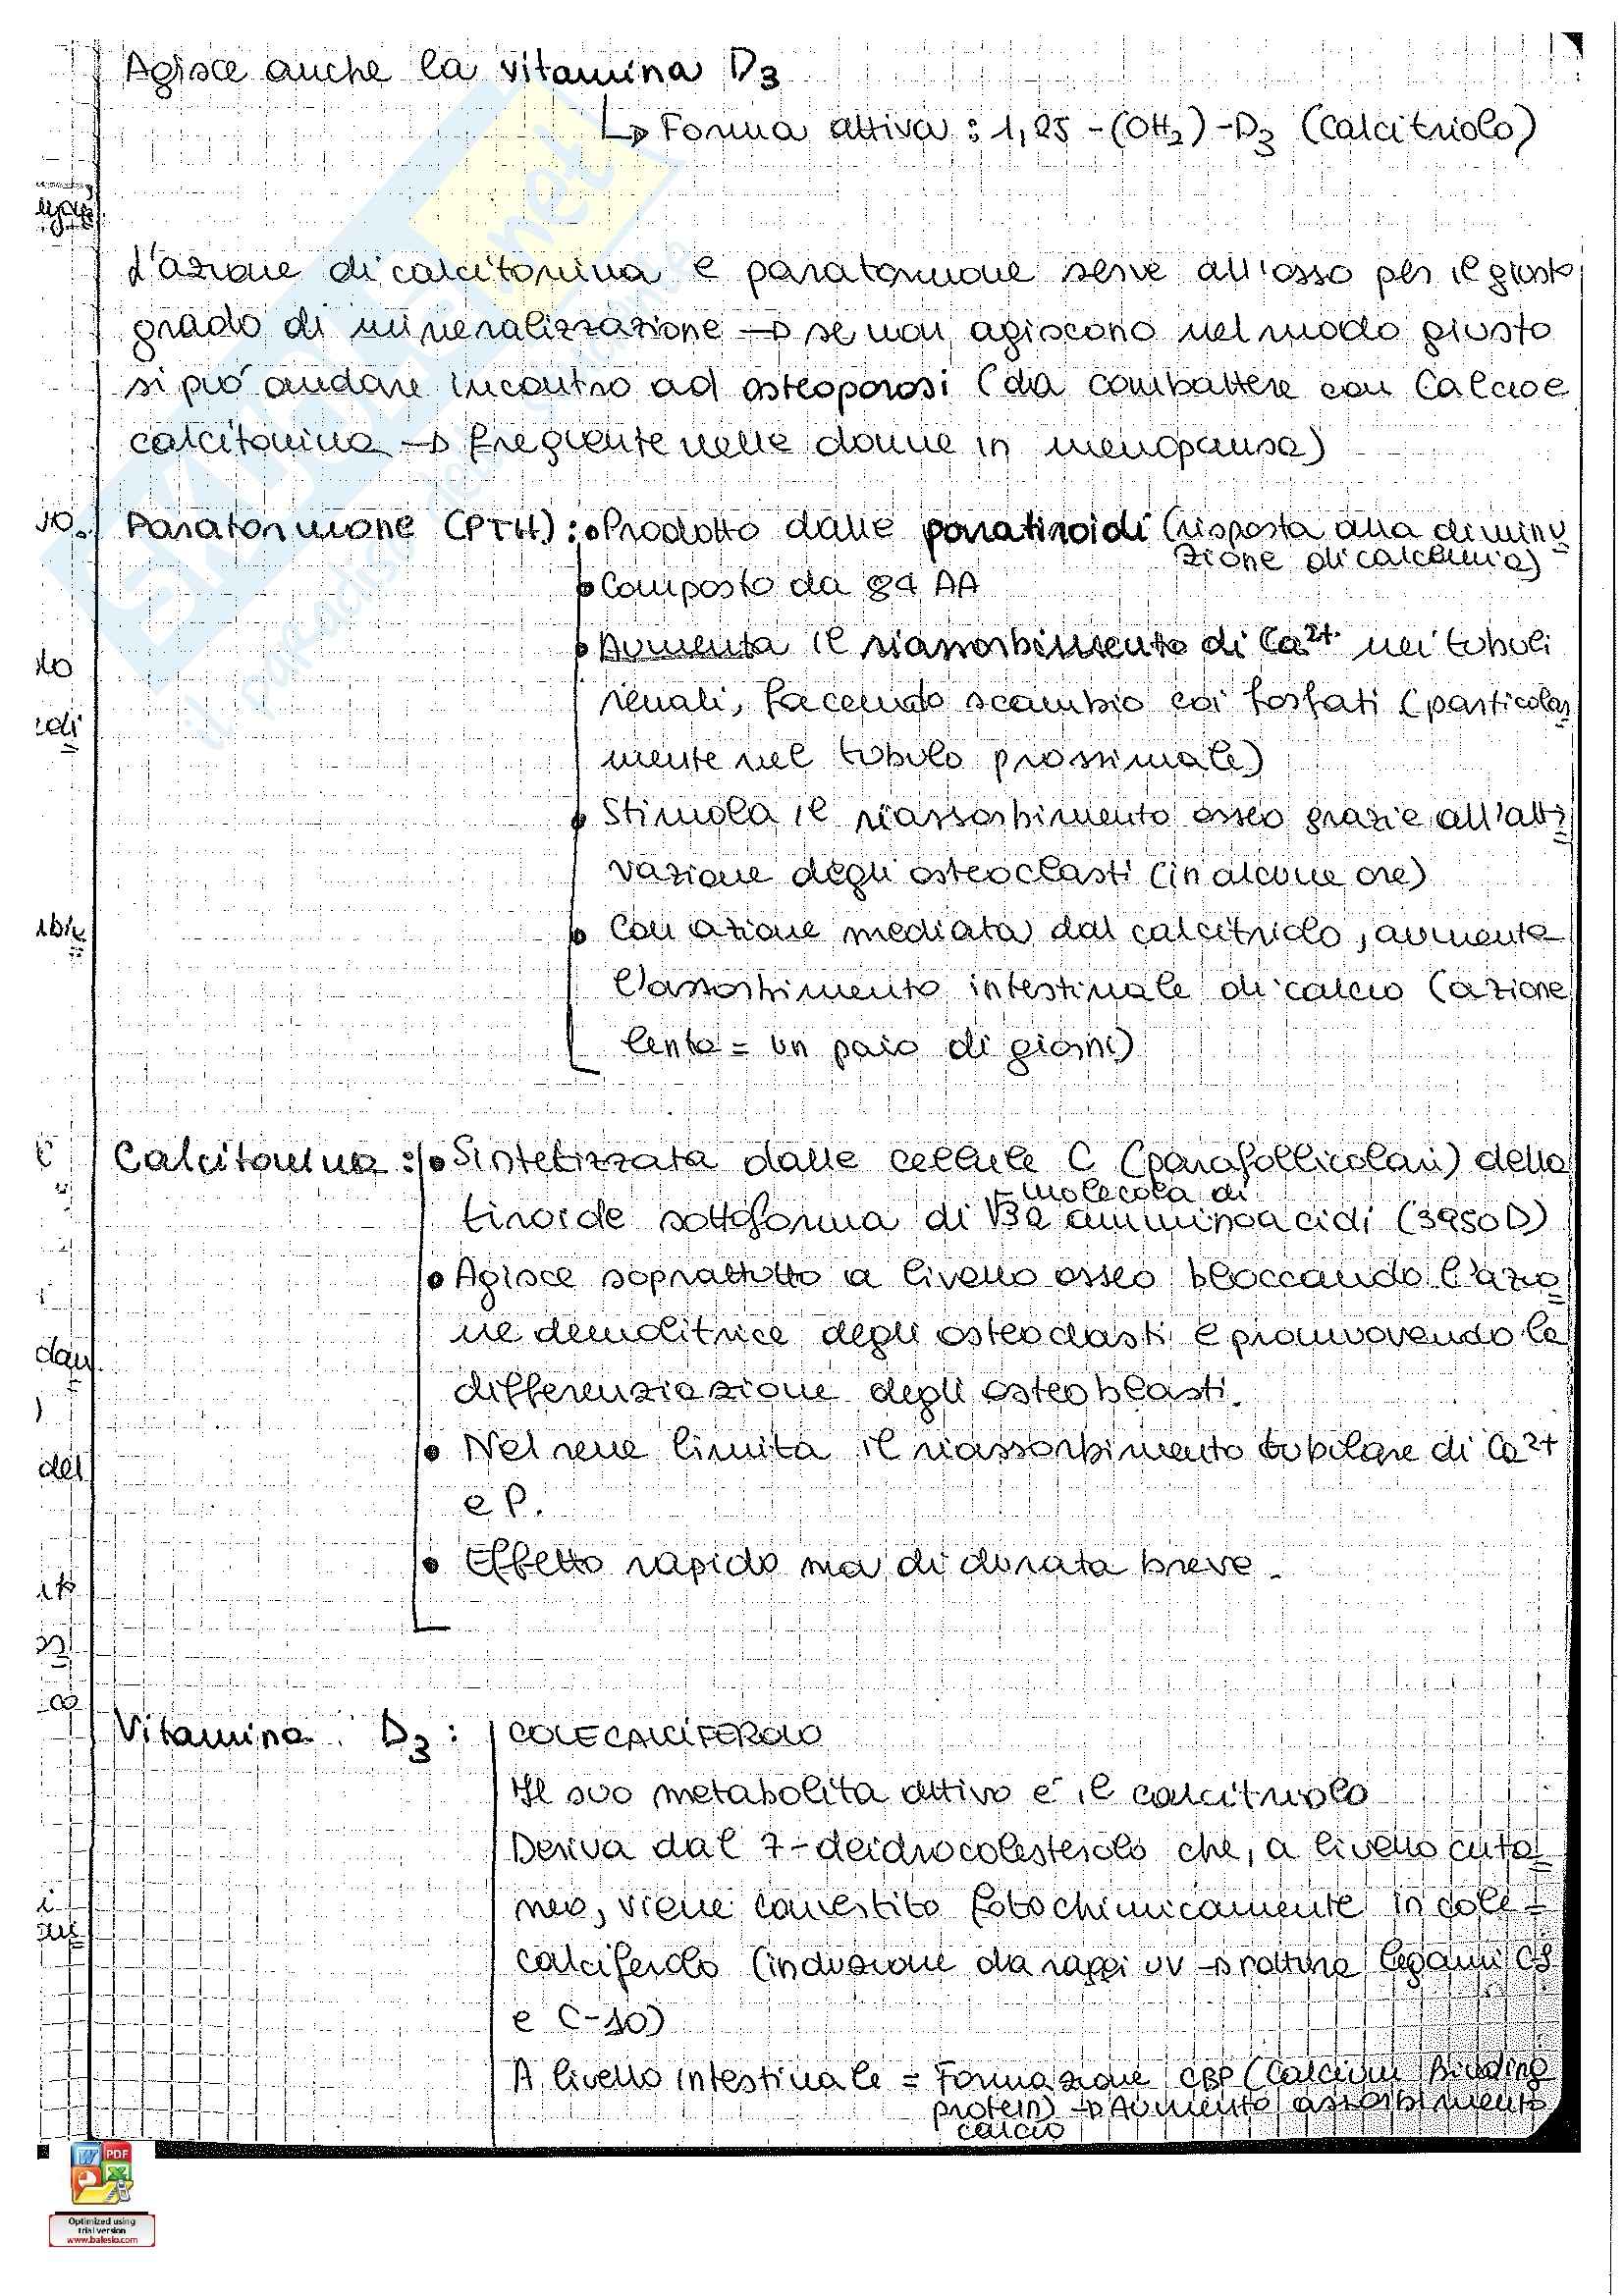 Agisce anche la vitamina D3
↳ Forma attiva : 1,25 -(OH2) -D3 (Calcitriolo)
L'azione di calcitonina e paratormone serve all'osso per il giusto
grado di mineralizzazione → se non agiscono nel modo giusto
si può andare incontro ad osteoporosi (da combattere con Calcio e
calcitonina → frequente nelle donne in menopausa)
Paratormone (PTH) : • Prodotto dalle paratiroidi (risposta alla diminu
zione di calcemia)
• Composto da 84 AA
• Aumenta il riassorbimento di Ca2+ nei tubuli
renali, facendo scambio coi fosfati (particolar
mente nel tubulo prossimale)
• Stimola il riassorbimento osseo grazie all'atti
vazione degli osteoclasti (in alcune ore)
• Con azione mediata dal calcitriolo, aumenta
l'assorbimento intestinale di calcio (azione
lenta = un paio di giorni)
Calcitonina : • Sintetizzata dalle cellule C (parafollicolari) della
molecola di
tiroide sottoforma di 32 amminoacidi (3950D)
• Agisce soprattutto a livello osseo bloccando l'azio
ne demolitrice degli osteoclasti e promuovendo la
differenziazione degli osteoblasti.
• Nel rene limita il riassorbimento tubulare di Ca2+
e P.
• Effetto rapido ma di durata breve.
Vitamina D3 : COLECALCIFEROLO
Il suo metabolita attivo è il calcitriolo
Deriva dal 7-deidrocolesterolo che, a livello cuta
neo, viene convertito fotochimicamente in cole-
calciferolo (induzione da raggi UV → rottura legami C9
e C-10)
A livello intestinale = Formazione CBP (Calcium Binding
protein) → Aumento assorbimento
calcio
Optimized using
trial version
www.balesio.com